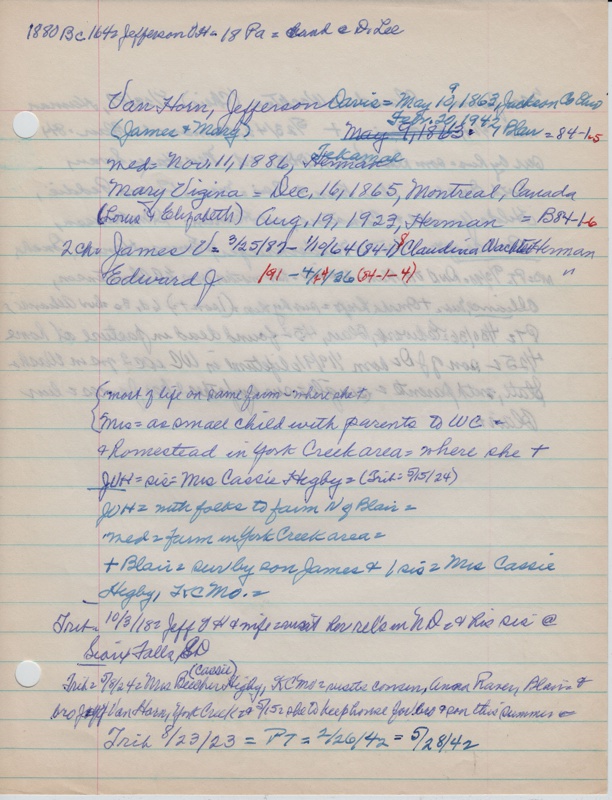 1880 Bc 164= Jefferson VH = 18 Pa = Land c D. Lee
Van Horn, Jefferson Davis = May 9, 1863, Jackson Co
(James & Mary) Febr. 20, 1942
May 9, 1863 = Blair = 84-1-5
med = Nov. 11, 1886, Herman Tekamah
Mary Virginia = Dec. 16, 1865, Montreal, Canada
(Louis & Elizabeth) Aug. 19, 1923, Herman = B84-1-6
2 ch = James V = 3/25/87 - 1/19/64 (84-1-8) Claudina Herman
Edward J 191 - 4/4/26 (84-1-4) "
{most of life on same farm = where she +
Mrs = as small child with parents to WC =
& Homestead in York Creek area = where she +
JVH = sis = Mrs Cassie Higby = (Trib = 5/15/24)
JVH = with folks to farm N of Blair =
med = farm in York Creek area =
+ Blair = surv by son James & 1 sis = Mrs Cassie
Higby, KC Mo. =
Trib = 10/3/18 = Jeff V H & wife = visit her rel's in ND & his sis @
Sioux Falls, SD
Trib = 5/8/24 = Mrs Beecher (Cassie) Higby, KC Mo = visits cousin, Anna Raver, Blair = &
bro Jeff Van Horn, York Creek = & 5/15 = she to keep house for bro & son this summer =
Trib 8/23/23 = PT = 2/26/42 = 5/28/42